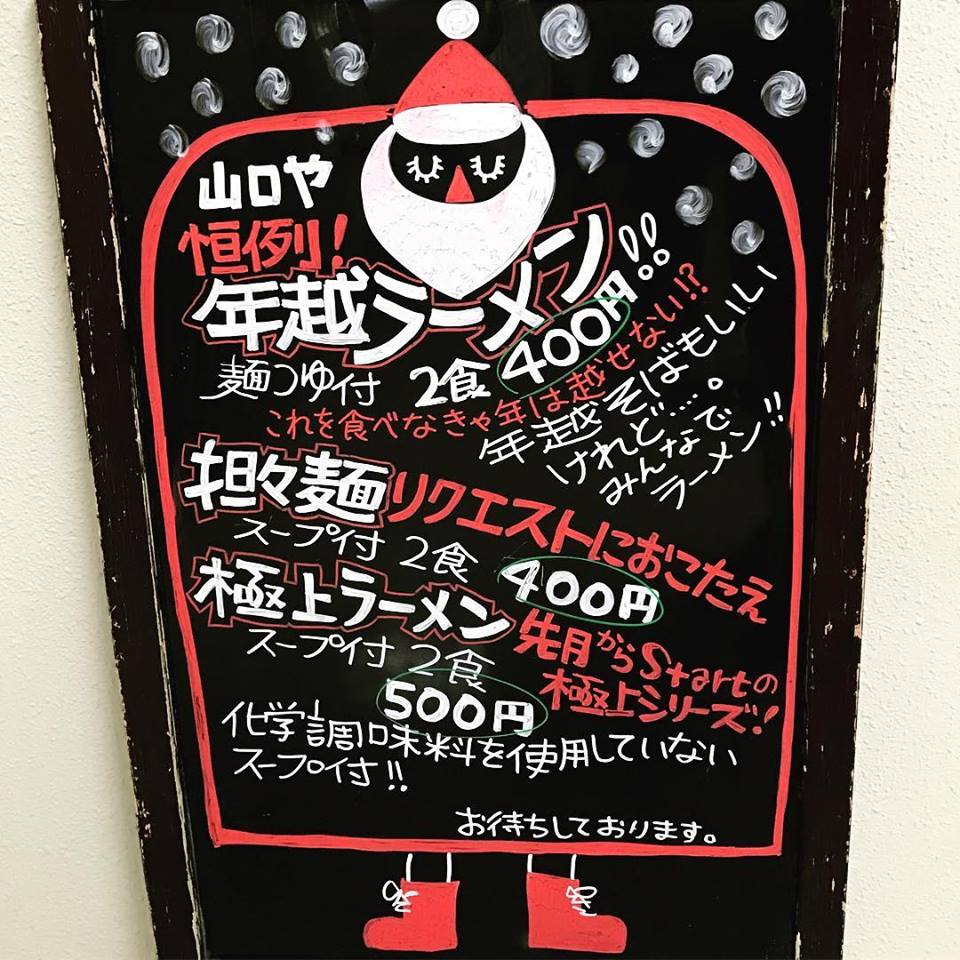 山口や
恒例!
年越ラーメン!!
麺つゆ付 2食 400円
これを食べなきゃ年は越せない!?
年越そばもいい
けれど....。
みんなで
ラーメン!!
担々麺 リクエストにおこたえ
スープ付 2食 400円
極上ラーメン
スープ付 2食
500円
先月からStartの
極上シリーズ!
化学調味料を使用していない
スープ付!!
お待ちしております。